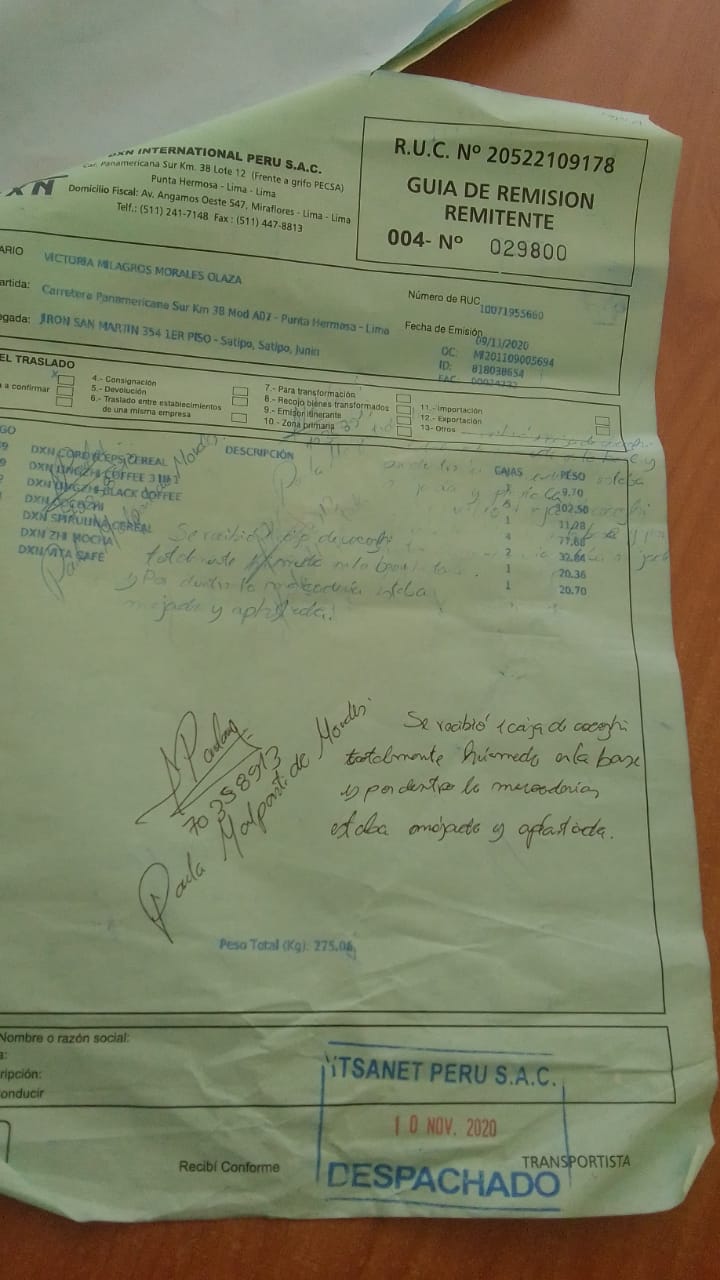 INTERNATIONAL PERU S.A.C.
Panamericana Sur Km. 38 Lote 12 (Frente a grifo PECSA)
Punta Hermosa - Lima - Lima
Domicilio Fiscal: Av. Angamos Oeste 547, Miraflores - Lima - Lima
Telf.: (511) 241-7148 Fax : (511) 447-8813
R.U.C. Nº 20522109178
GUIA DE REMISION
REMITENTE
004- Nº 029800
ARIO VICTORIA MILAGROS MORALES OLAZA
artida: Carretera Panamericana Sur Km 38 Mod A02 - Punta Hermosa - Lima
egada: JIRON SAN MARTIN 354 1ER PISO - Satipo, Satipo, Junin
Número de RUC 10071955660
Fecha de Emisión 09/11/2020
OC: MI201109005694
ID: 818038654
FAC:
EL TRASLADO
a a confirmar
4.- Consignación
5.- Devolución
6.- Traslado entre establecimientos
de una misma empresa
7.- Para transformación
8.- Recojo bienes transformados
9.- Emisor itinerante
10.- Zona primaria
11.- Importación
12.- Exportación
13- Otros
GO DESCRIPCIÓN CAJAS PESO
DXN CORDYCEPS CEREAL 9.70
DXN LINGZHI COFFEE 3 IN 1 102.50
DXN LINGZHI BLACK COFFEE 1 11.28
DXN COCOZHI 4
DXN SPIRULINA CEREAL 2 32.84
DXN ZHI MOCHA 1 20.36
DXN VITA CAFE 1 20.70
Se recibió 1 caja de cocoghi
totalmente húmedo en la base
y por dentro la mercadería
estaba mojada y aplastada.
70358913
Paula Malpartida Morales
Peso Total (Kg): 275.06
Nombre o razón social:
ripción:
onducir
ITSANET PERU S.A.C.
10 NOV. 2020
DESPACHADO
Recibí Conforme
TRANSPORTISTA